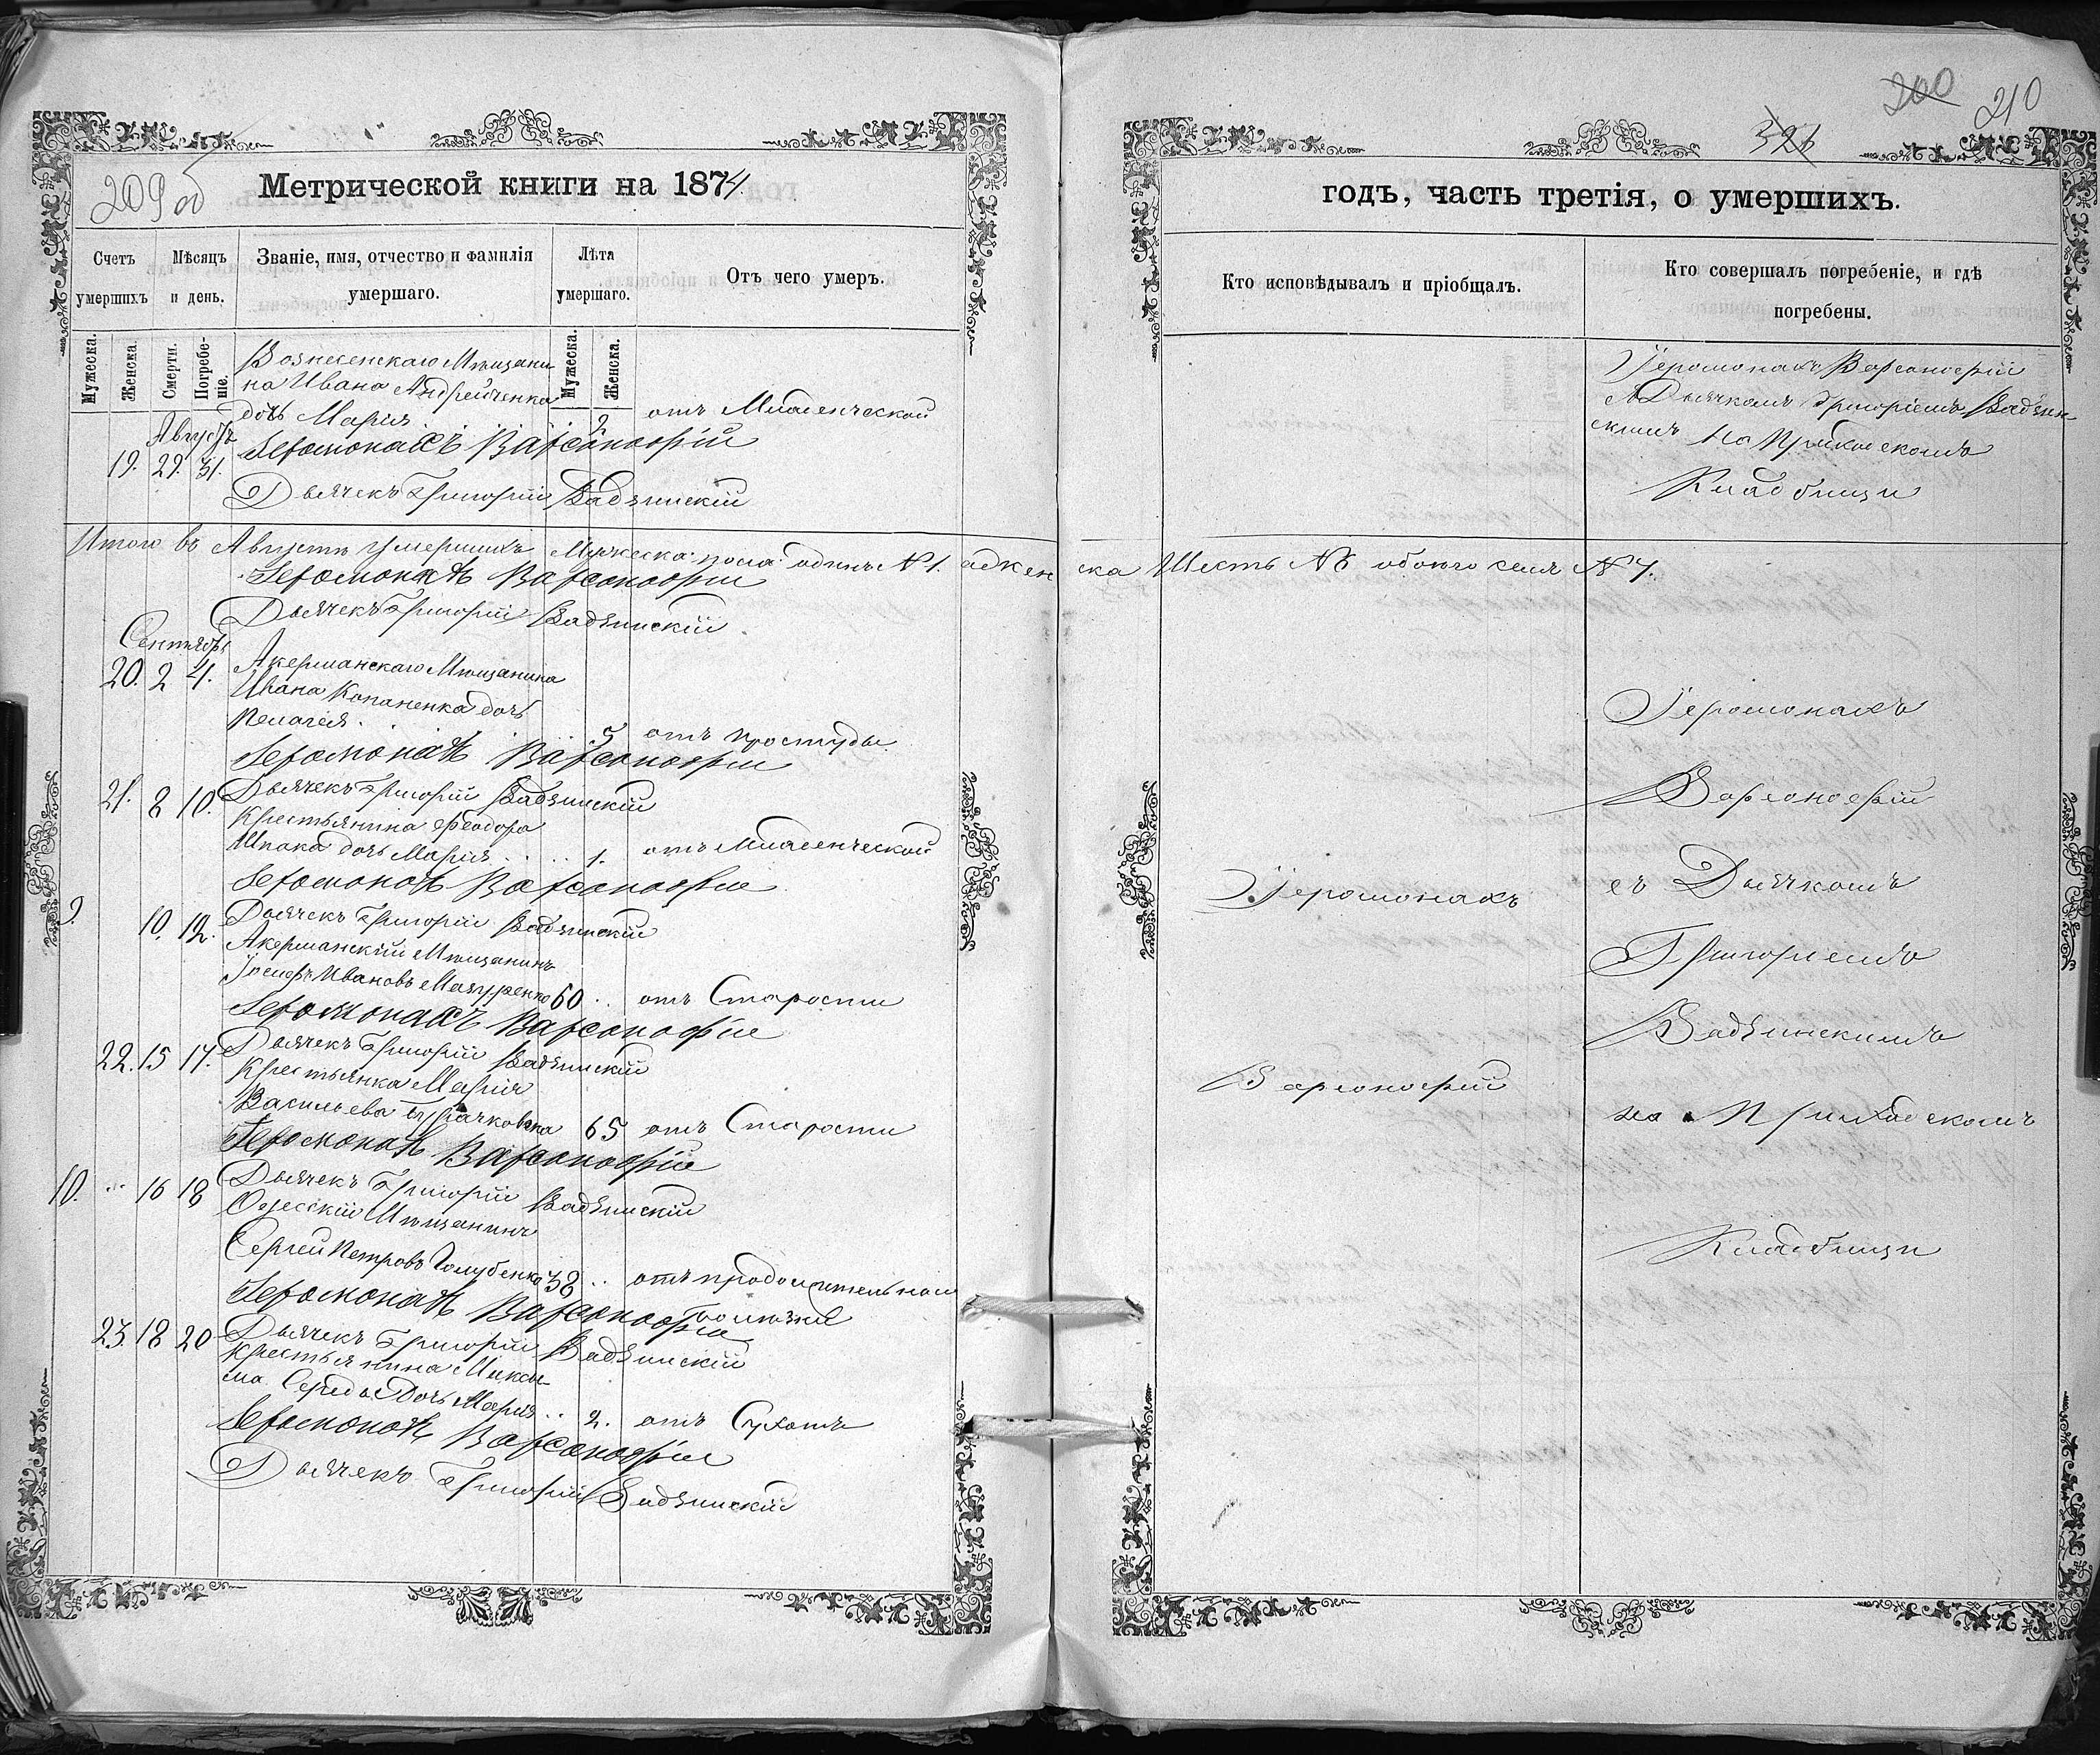 209об
Метрической книги на 1874
Счетъ умершихъ
Мѣсяцъ и день.
Званіе, имя, отчество и фамилія умершаго.
Лѣта умершаго.
Отъ чего умеръ.
Мужеска.
Женска.
Смерти.
Погребеніе.
Мужеска.
Женска.
Вознесенскаго Мѣщани
на Ивана Андрейченка
дочь Марія
Августъ
19. 29. 31.
отъ Младенческой
Іеромонахъ Варсонофій
Дьячекъ Григорій Вадзинскій
Итого въ Августѣ умершихъ Мужеска пола одинъ №1. а женска Шесть №6 обоего пола №7.
Іеромонахъ Варсонофій
Дьячекъ Григорій Вадзинскій
Сентябрь
20. 2 4. Акерманскаго Мѣщанина
Ивана Копаненка дочь
Пелагея. 5 отъ простуды
Іеромонахъ Варсонофій
Дьячекъ Григорій Вадзинскій
21. 8 10. Крестьянина Феодора
Шпака дочь Марія 1. отъ Младенческой
Іеромонахъ Варсонофій
Дьячекъ Григорій Вадзинскій
9. 10. 12. Акерманскій Мѣщанинъ
Іосифъ Ивановъ Мазуренко 60 отъ Старости
Іеромонахъ Варсонофій
Дьячекъ Григорій Вадзинскій
22. 15 17. Крестьянка Марія
Васильева 65 отъ Старости
Іеромонахъ Варсонофій
Дьячекъ Григорій Вадзинскій
10. 16 18 Одесскій Мѣщанинъ
Сергей Петровъ Голубенко 38 отъ продолжительной
болѣзни
Іеромонахъ Варсонофій
Дьячекъ Григорій Вадзинскій
23. 18 20 Крестьянина Макси
ма Середы Дочь Марія 2. отъ Сухотъ
Іеромонахъ Варсонофій
Дьячекъ Григорій Вадзинскій
200
210
326
годъ, часть третія, о умершихъ.
Кто исповѣдывалъ и пріобщалъ.
Кто совершалъ погребеніе, и гдѣ погребены.
Іеромонахъ Варсонофій
съ Дьячкомъ Григоріемъ Вадзин
скимъ на Приходскомъ
Кладбищи
Іеромонахъ
Варсонофій
Іеромонахъ
Варсонофій
съ Дьячкомъ
Григоріемъ
Вадзинскимъ
на Приходскомъ
Кладбищи